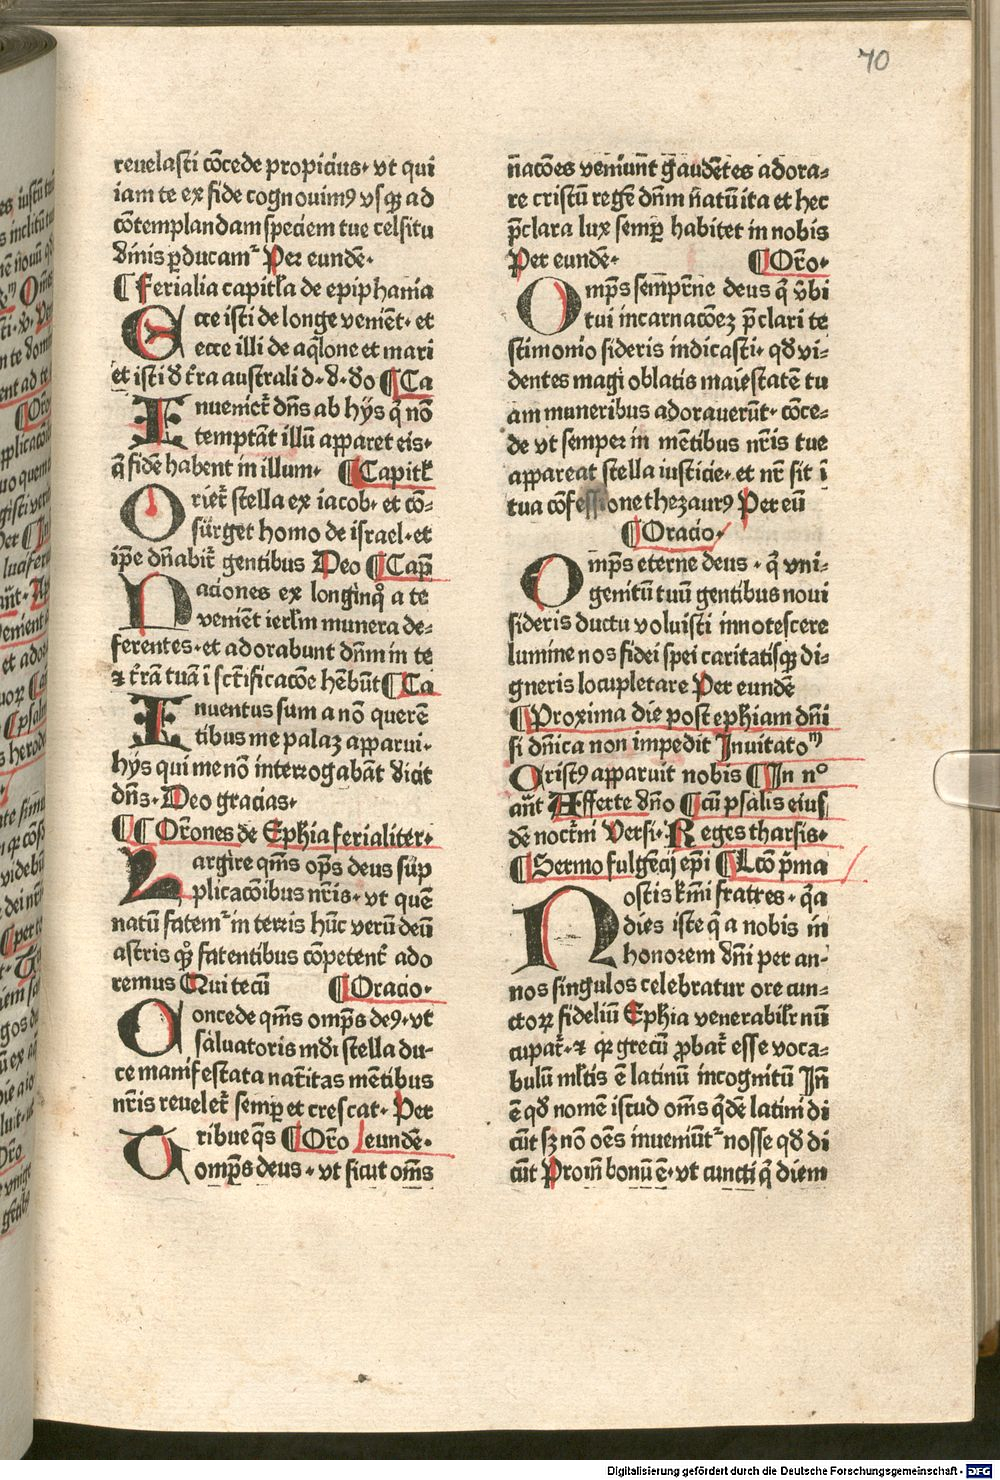 70
reuelasti cōcede propicius· vt qui
iam te ex fide cognouimꝰ vsqꝫ ad
cōtemplandam speciem tue celsitu
dinis ꝑducam̃ Per eundē·
¶ Ferialia capitl̃a de epiphania
Ecce isti de longe venient̄· et
ecce illi de aq̄lone et mari
et isti d̄ t̄ra australi d· d· do ¶ Ca
Inueniet̄ dn̄s ab hijs q̄ nō
temptāt illū apparet eis·
q̄ fidē habent in illum· ¶ Capitl̃
Oriet̄ stella ex iacob· et cō-
surget homo de israel· et
ip̄e dn̄abit̄ gentibus Deo ¶ Cap̄
Naciones ex longinq̊ a te
venient̄ ierl̄m munera de-
ferentes· et adorabunt dn̄m in te
⁊ t̄rā tuā ī sct̄ificacōe hēbūt ¶ Ca
Inuentus sum a nō querē
tibus me palaꝫ apparui·
hijs qui me nō interrogabāt dicit
dn̄s· Deo gracias·
¶¶ Or̄ones de Ephia ferialiter·
Largire qm̄s op̄s deus sup
plicacōibus nr̄is· vt quē
natū fatem̃ in terris hūc verū deū
astris qꝫ fatentibus cōpetent̄ ado
remus Qui tecū ¶ Oracio·
Concede qm̄s omp̄s deꝰ· vt
saluatoris mūdi stella du-
ce manifestata nat̄itas mētibus
nr̄is reuelet̄ semꝑ et crescat· Per
Tribue qs̄ ¶ Or̄o eundē·
omp̄s deus· vt sicut om̄s
n̄acōes veniūnt gaudētes adora-
re cristū regē dn̄m n̄atū ita et hec
p̄clara lux semꝑ habitet in nobis
Per eundē· ¶ Or̄o·
Omp̄s semꝑr̄ne deus q̄ v̄bi
tui incarnacōeꝫ p̄clari te
stimonio sideris indicasti· qd̄ vi-
dentes magi oblatis maiestatē tu
am muneribus adorauerūt· cōce-
de vt semper in mētibus nr̄is tue
appareat stella iusticie· et nr̄ sit ī
tua cōfessione thezaurꝰ Per eū
¶ Oracio·
Omp̄s eterne deus· q̄ vni-
genitū tuū gentibus noui
sideris ductu voluisti innotescere
lumine nos fidei spei caritatisqꝫ di-
gneris locupletare Per eundē
¶ Proxima die post ephiam dn̄i
si dn̄ica non impedit Inuitatoᵐ
Cristꝰ apparuit nobis ¶ In n°
aūt Afferte dn̄o ¶ cū psalīs eius
dē noct̄ni Versi· Reges tharsis·
¶ Sermo fulgēcij ep̄i ¶ Lcō p̄ma
Nostis kr̄mi fratres· q̄a
dies iste q̄ a nobis in
honorem dn̄i per an-
nos singulos celebratur ore cun-
ctoꝝ fideliū Ephia venerabilr̄ nū
cupat̄· ⁊ qꝛ grecū ꝓbat̄ esse voca-
bulū ml̄tis ē latinū incognitū In̄
ē qd̄ nomē istud om̄s q̄dē latini di
cūt sꝫ nō oēs inueniūt̃ nosse qd̄ di
cūt Proin̄ bonū ē· vt cuncti q̄ diem
Digitalisierung gefördert durch die Deutsche Forschungsgemeinschaft - DFG